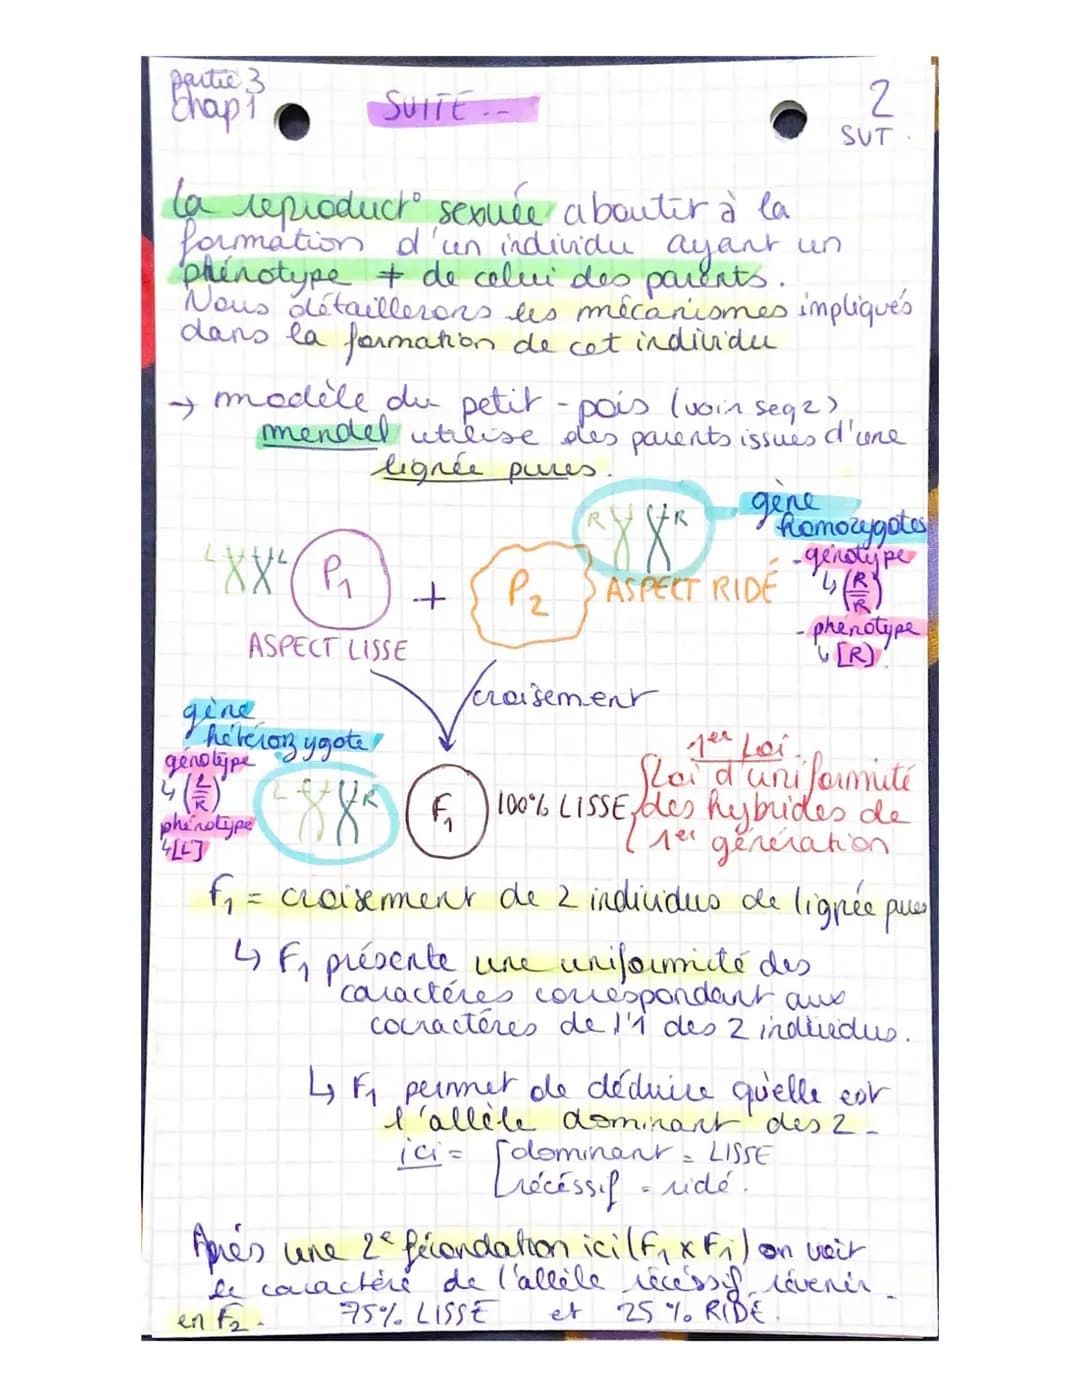 partie 3
chap 1
SUITE...
2
SVT.
la reproduct° sexuée aboutir à la
formation d'un individu ayant un
phénotype ≠ de celui des parents.
Nous détaillerons les mécanismes impliqués
dans la formation de cet individu
→ modèle du petit-pois (voir seq 2)
mendel utilise des parents issues d'une
lignée pures.
gène
homozygotes
- génotype
↳ (R/R)
- phénotype
↳ [R]
R R
L L
P1
+
P2
ASPECT RIDÉ
ASPECT LISSE
croisement
gène
hétérozygote
génotype
↳ (L/R)
phénotype
↳ [L]
L R
F1
100% LISSE
1er Loi
Loi d'uniformité
des hybrides de
1er génération
F1 = croisement de 2 individus de lignée pures
↳ F1 présente une uniformité des
caractères correspondant aux
caractères de l'1 des 2 individus.
↳ F1 permet de déduire qu'elle est
l'allèle dominant des 2 -
ici = dominant = LISSE
récéssif = ridé.
Après une 2e fécondation ici (F1 x F1) on voit
le caractère de l'allèle récéssif révenir
en F2. 75% LISSE et 25% RIDÉ.